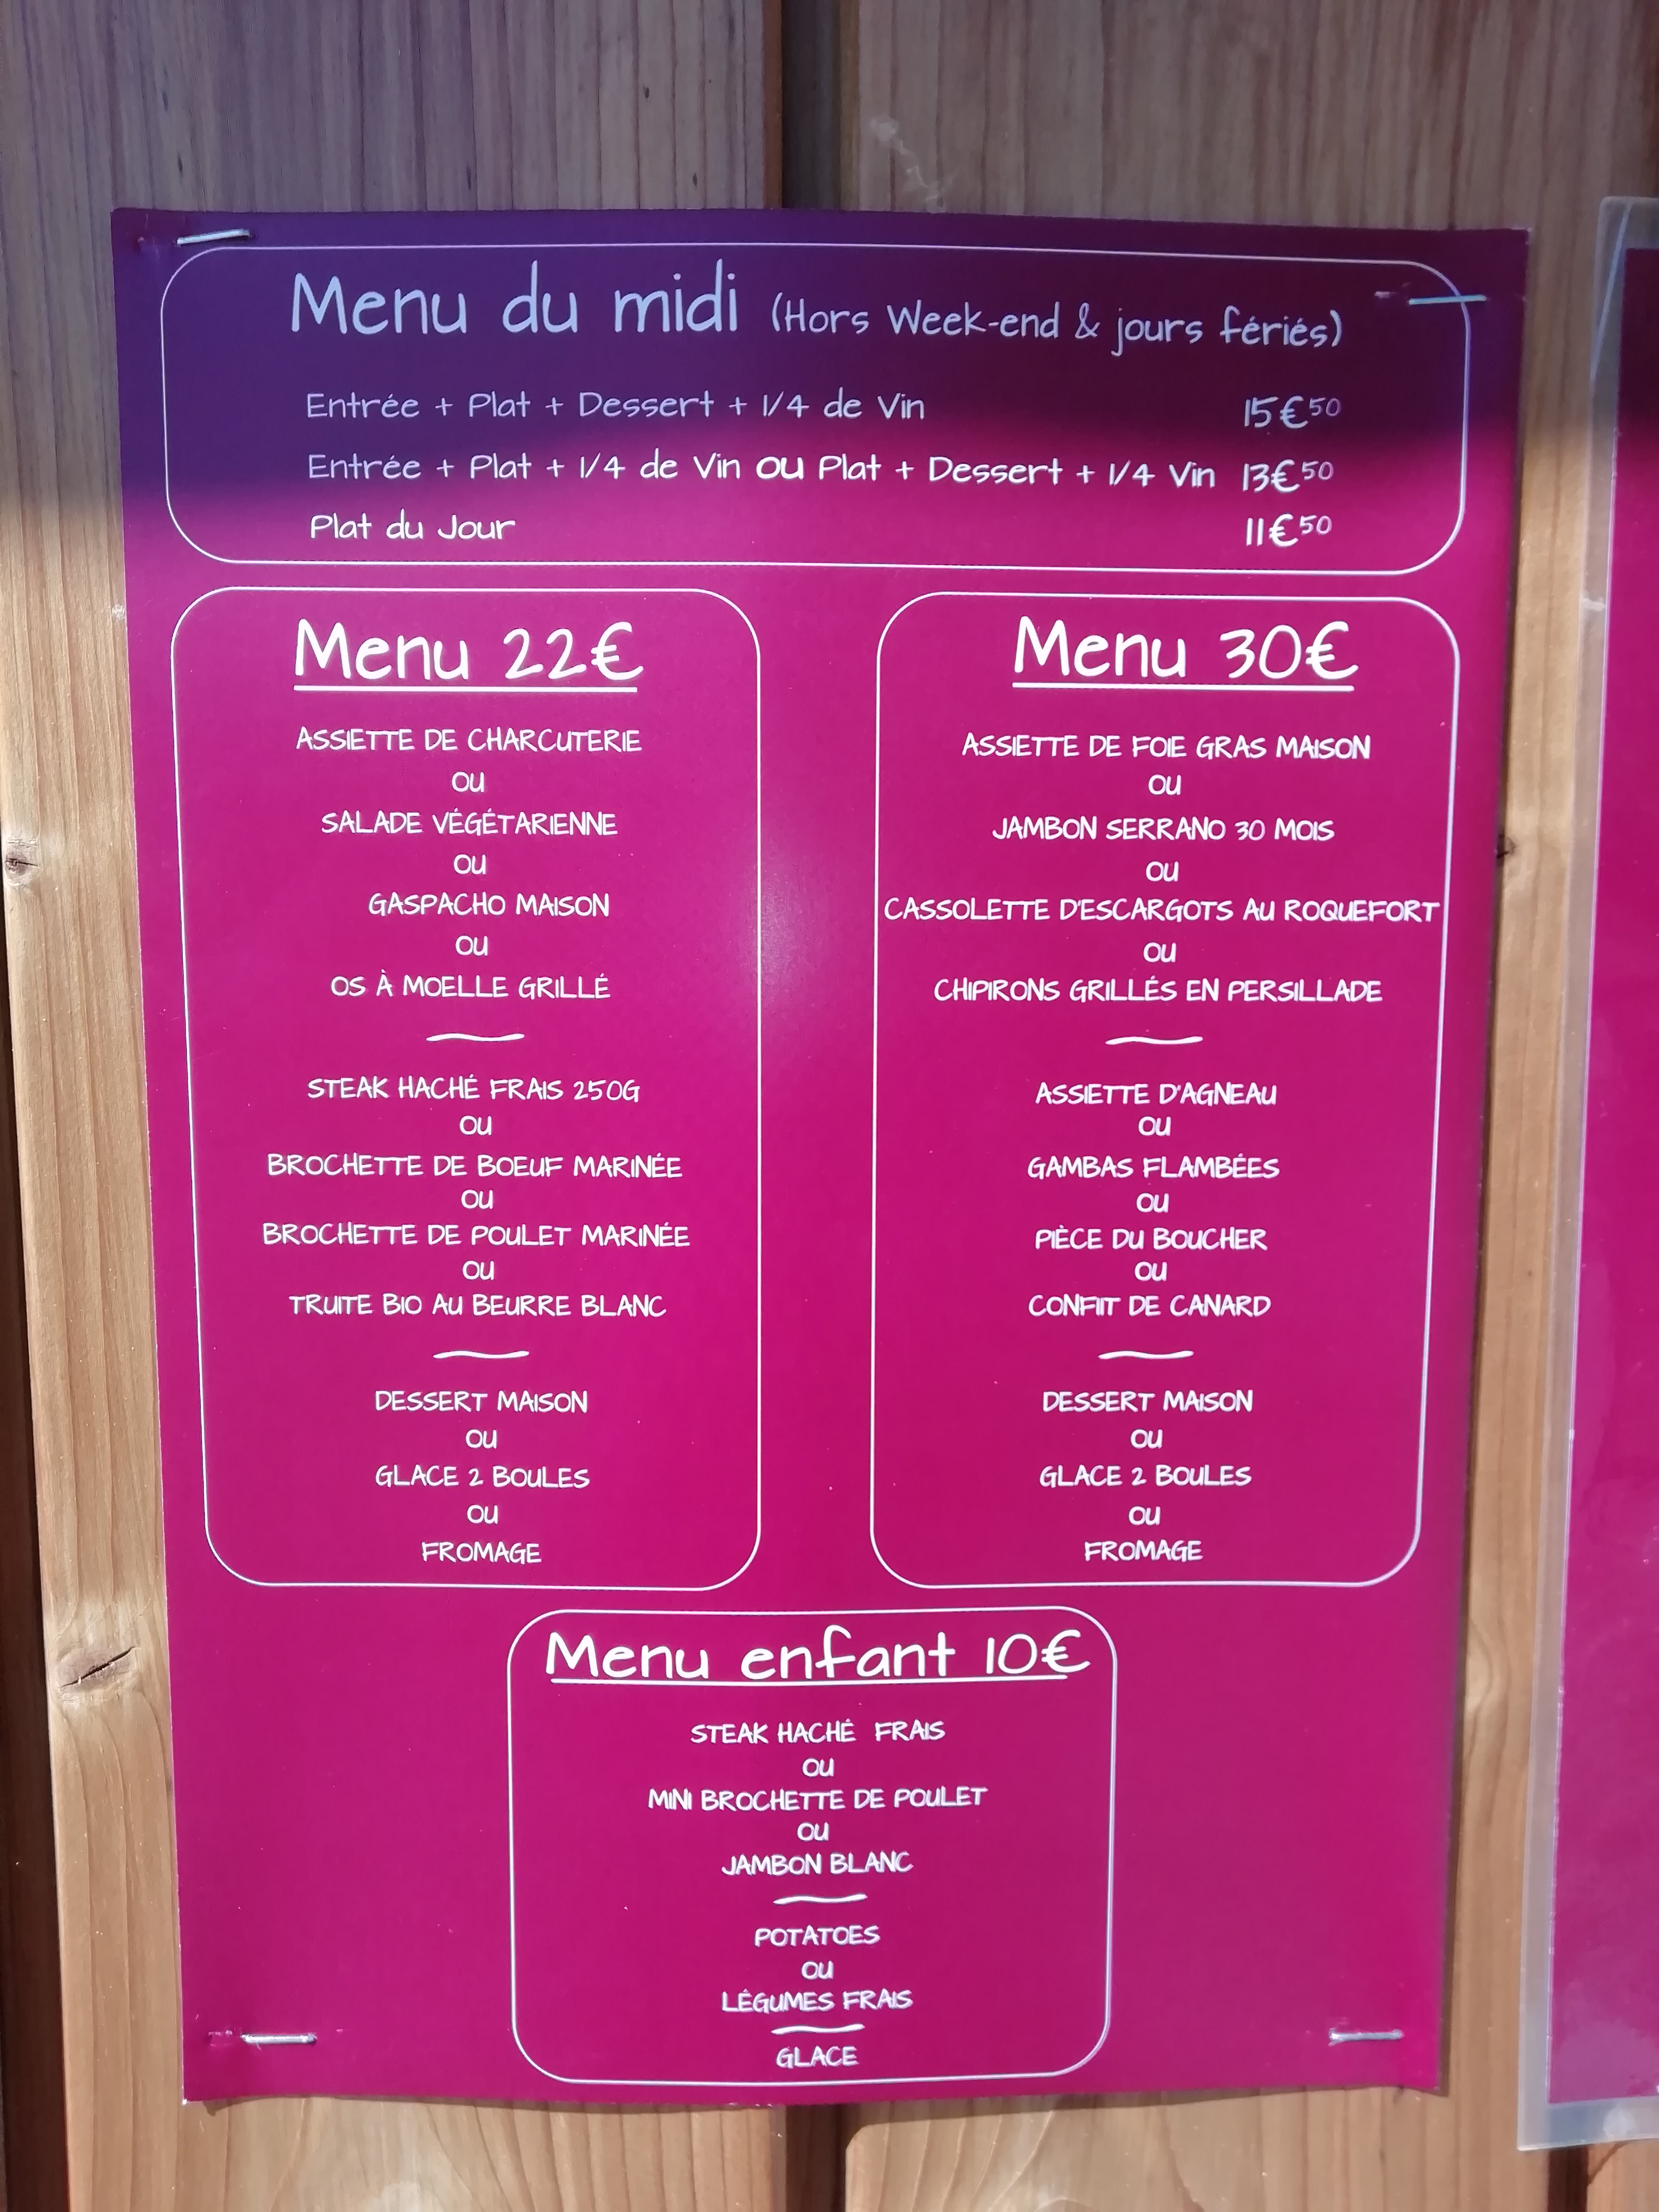 Menu du midi (Hors Week-end & jours fériés)
Entrée + Plat + Dessert + 1/4 de Vin 15€50
Entrée + Plat + 1/4 de Vin ou Plat + Dessert + 1/4 Vin 13€50
Plat du Jour 11€50
Menu 22€
ASSIETTE DE CHARCUTERIE
OU
SALADE VÉGÉTARIENNE
OU
GASPACHO MAISON
OU
OS À MOELLE GRILLÉ
STEAK HACHÉ FRAIS 250G
OU
BROCHETTE DE BOEUF MARINÉE
OU
BROCHETTE DE POULET MARINÉE
OU
TRUITE BIO AU BEURRE BLANC
DESSERT MAISON
OU
GLACE 2 BOULES
OU
FROMAGE
Menu 30€
ASSIETTE DE FOIE GRAS MAISON
OU
JAMBON SERRANO 30 MOIS
OU
CASSOLETTE D'ESCARGOTS AU ROQUEFORT
OU
CHIPIRONS GRILLÉS EN PERSILLADE
ASSIETTE D'AGNEAU
OU
GAMBAS FLAMBÉES
OU
PIÈCE DU BOUCHER
OU
CONFIIT DE CANARD
DESSERT MAISON
OU
GLACE 2 BOULES
OU
FROMAGE
Menu enfant 10€
STEAK HACHÉ FRAIS
OU
MINI BROCHETTE DE POULET
OU
JAMBON BLANC
POTATOES
OU
LÉGUMES FRAIS
GLACE